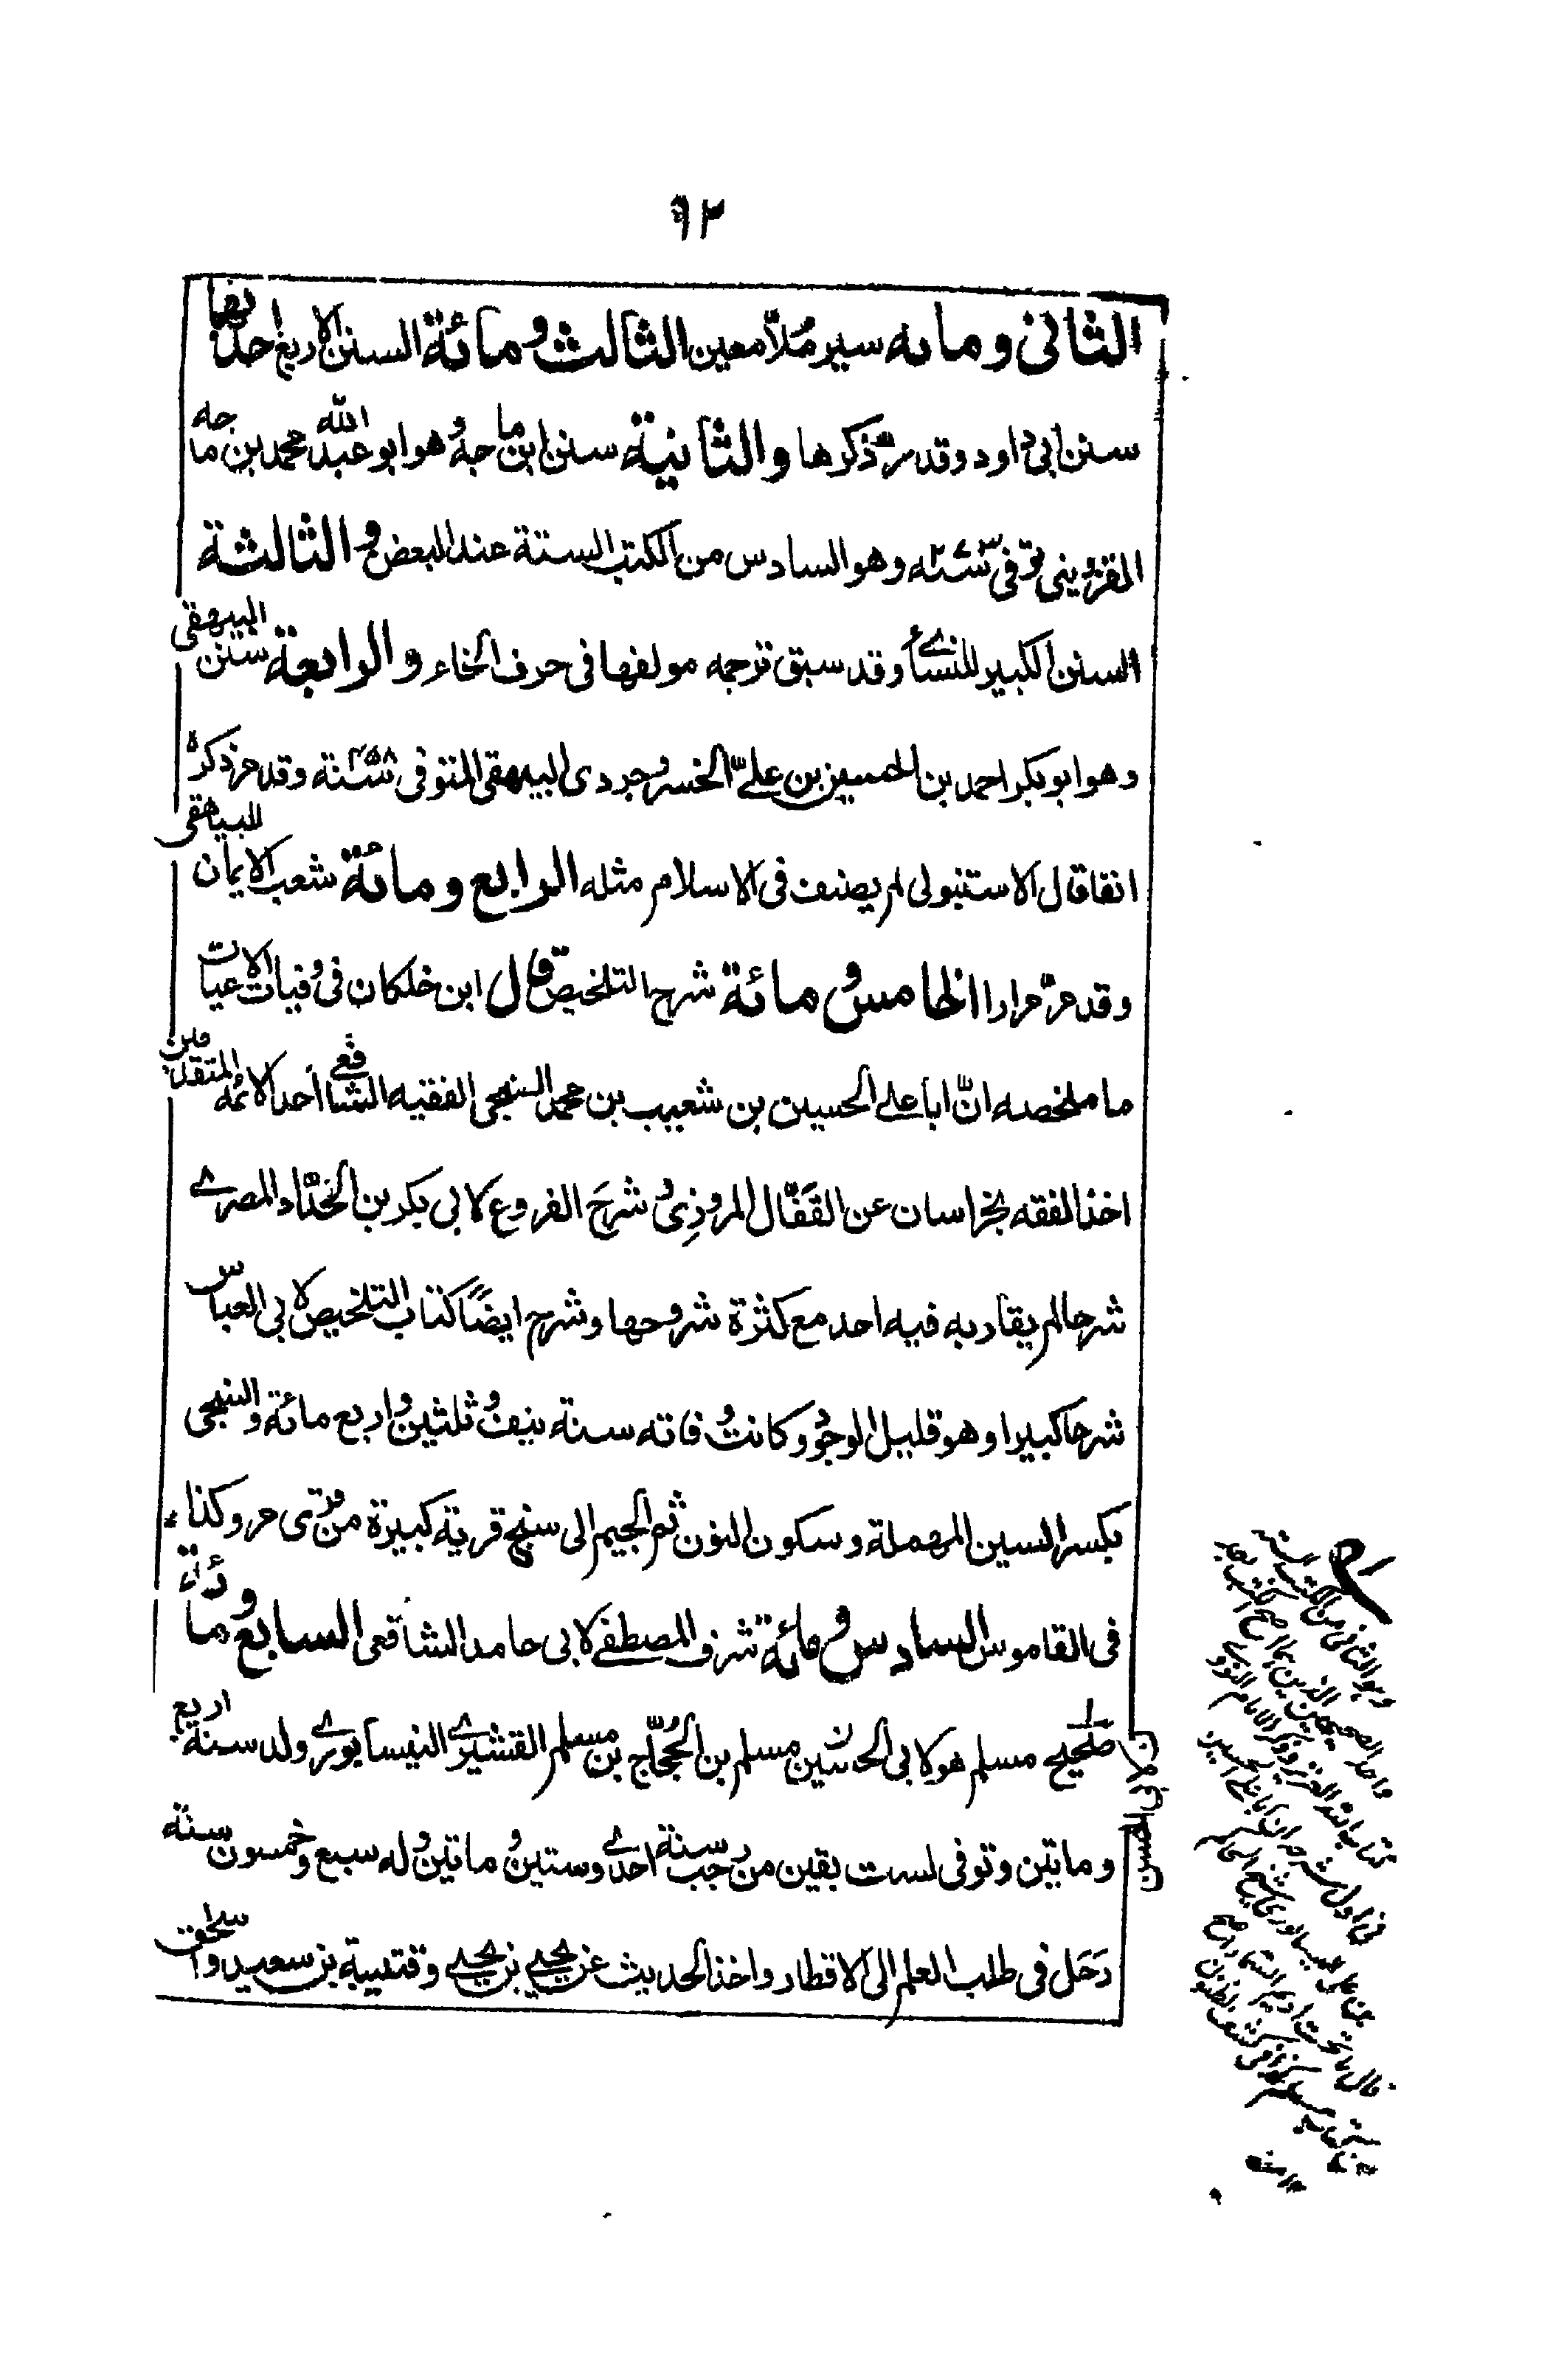 ٩٢
الثانی ومائه سیر مُلّا معین الثالث ومائة السنن الاربع احدٰها
سنن ابی داود وقد مرّ ذکرها والثانیة سنن ابن ماجه وهو ابو عبد الله محمد بن ماجه
القزوینی توفی سنه ٢٧٣ وهو السادس من الکتب الستة عند البعض والثالثة
السنن الکبیر للنسائے وقد سبق ترجمه مولفها فی حرف الخاء والرابعة سنن البیهقی
وهو ابو بکر احمد بن الحسین بن علیّ الخسروجردی البیهقی المتوفی سنة ٤٥٨ وقد مر ذکره
انفا قال الاستنبولی لم یصنف فی الاسلام مثله الرابع ومائة شعب الایمان للبیهقی
وقد مرّ مرارا الخامس ومائة شرح التلخیص قال ابن خلکان فی وفیات الاعیان
ما ملخصه انّ ابا علے الحسین بن شعیب بن محمد السنجی الفقیه الشافعی احد الائمه المتقدمین
اخذ الفقه بخراسان عن القَفّال المروذِی وشرحَ الفروع لابی بکر بن الحدّاد المصرے
شرحا لم یقاربه فیه احد مع کثرة شروحها وشرح ایضًا کتاب التلخیص لابی العباس
شرحا کبیرا وهو قلیل الوجود وکانت وفاته سنة نیف وثلثین واربع مائة والسنجی
بکسر السین المهملة وسکون النون ثم الجیم الی سنج قریة کبیرة من قری مرو کذا
فی القاموس السادس ومائة شرف المصطفے لابی حامد الشافعی السابع ومائة
صحیح مسلم هو لابی الحسین مسلم بن الحجّاج بن مسلم القشیرے النیسابورے ولد سنة اربع
ومایتین وتوفی لست بقین من رجب سنة احدے وستین ومایتین وله سبع وخمسون سنة
رَحَل فی طلب العلم الی الاقطار واخذ الحدیث عن یحیے بن یحیے وقتیبة بن سعید واسحق
وهو الثانی من الکتب الستة
واحد الصحیحین الذین هما اصح الکتب بعد
کتاب الله العزیز وذکر الامام النووے